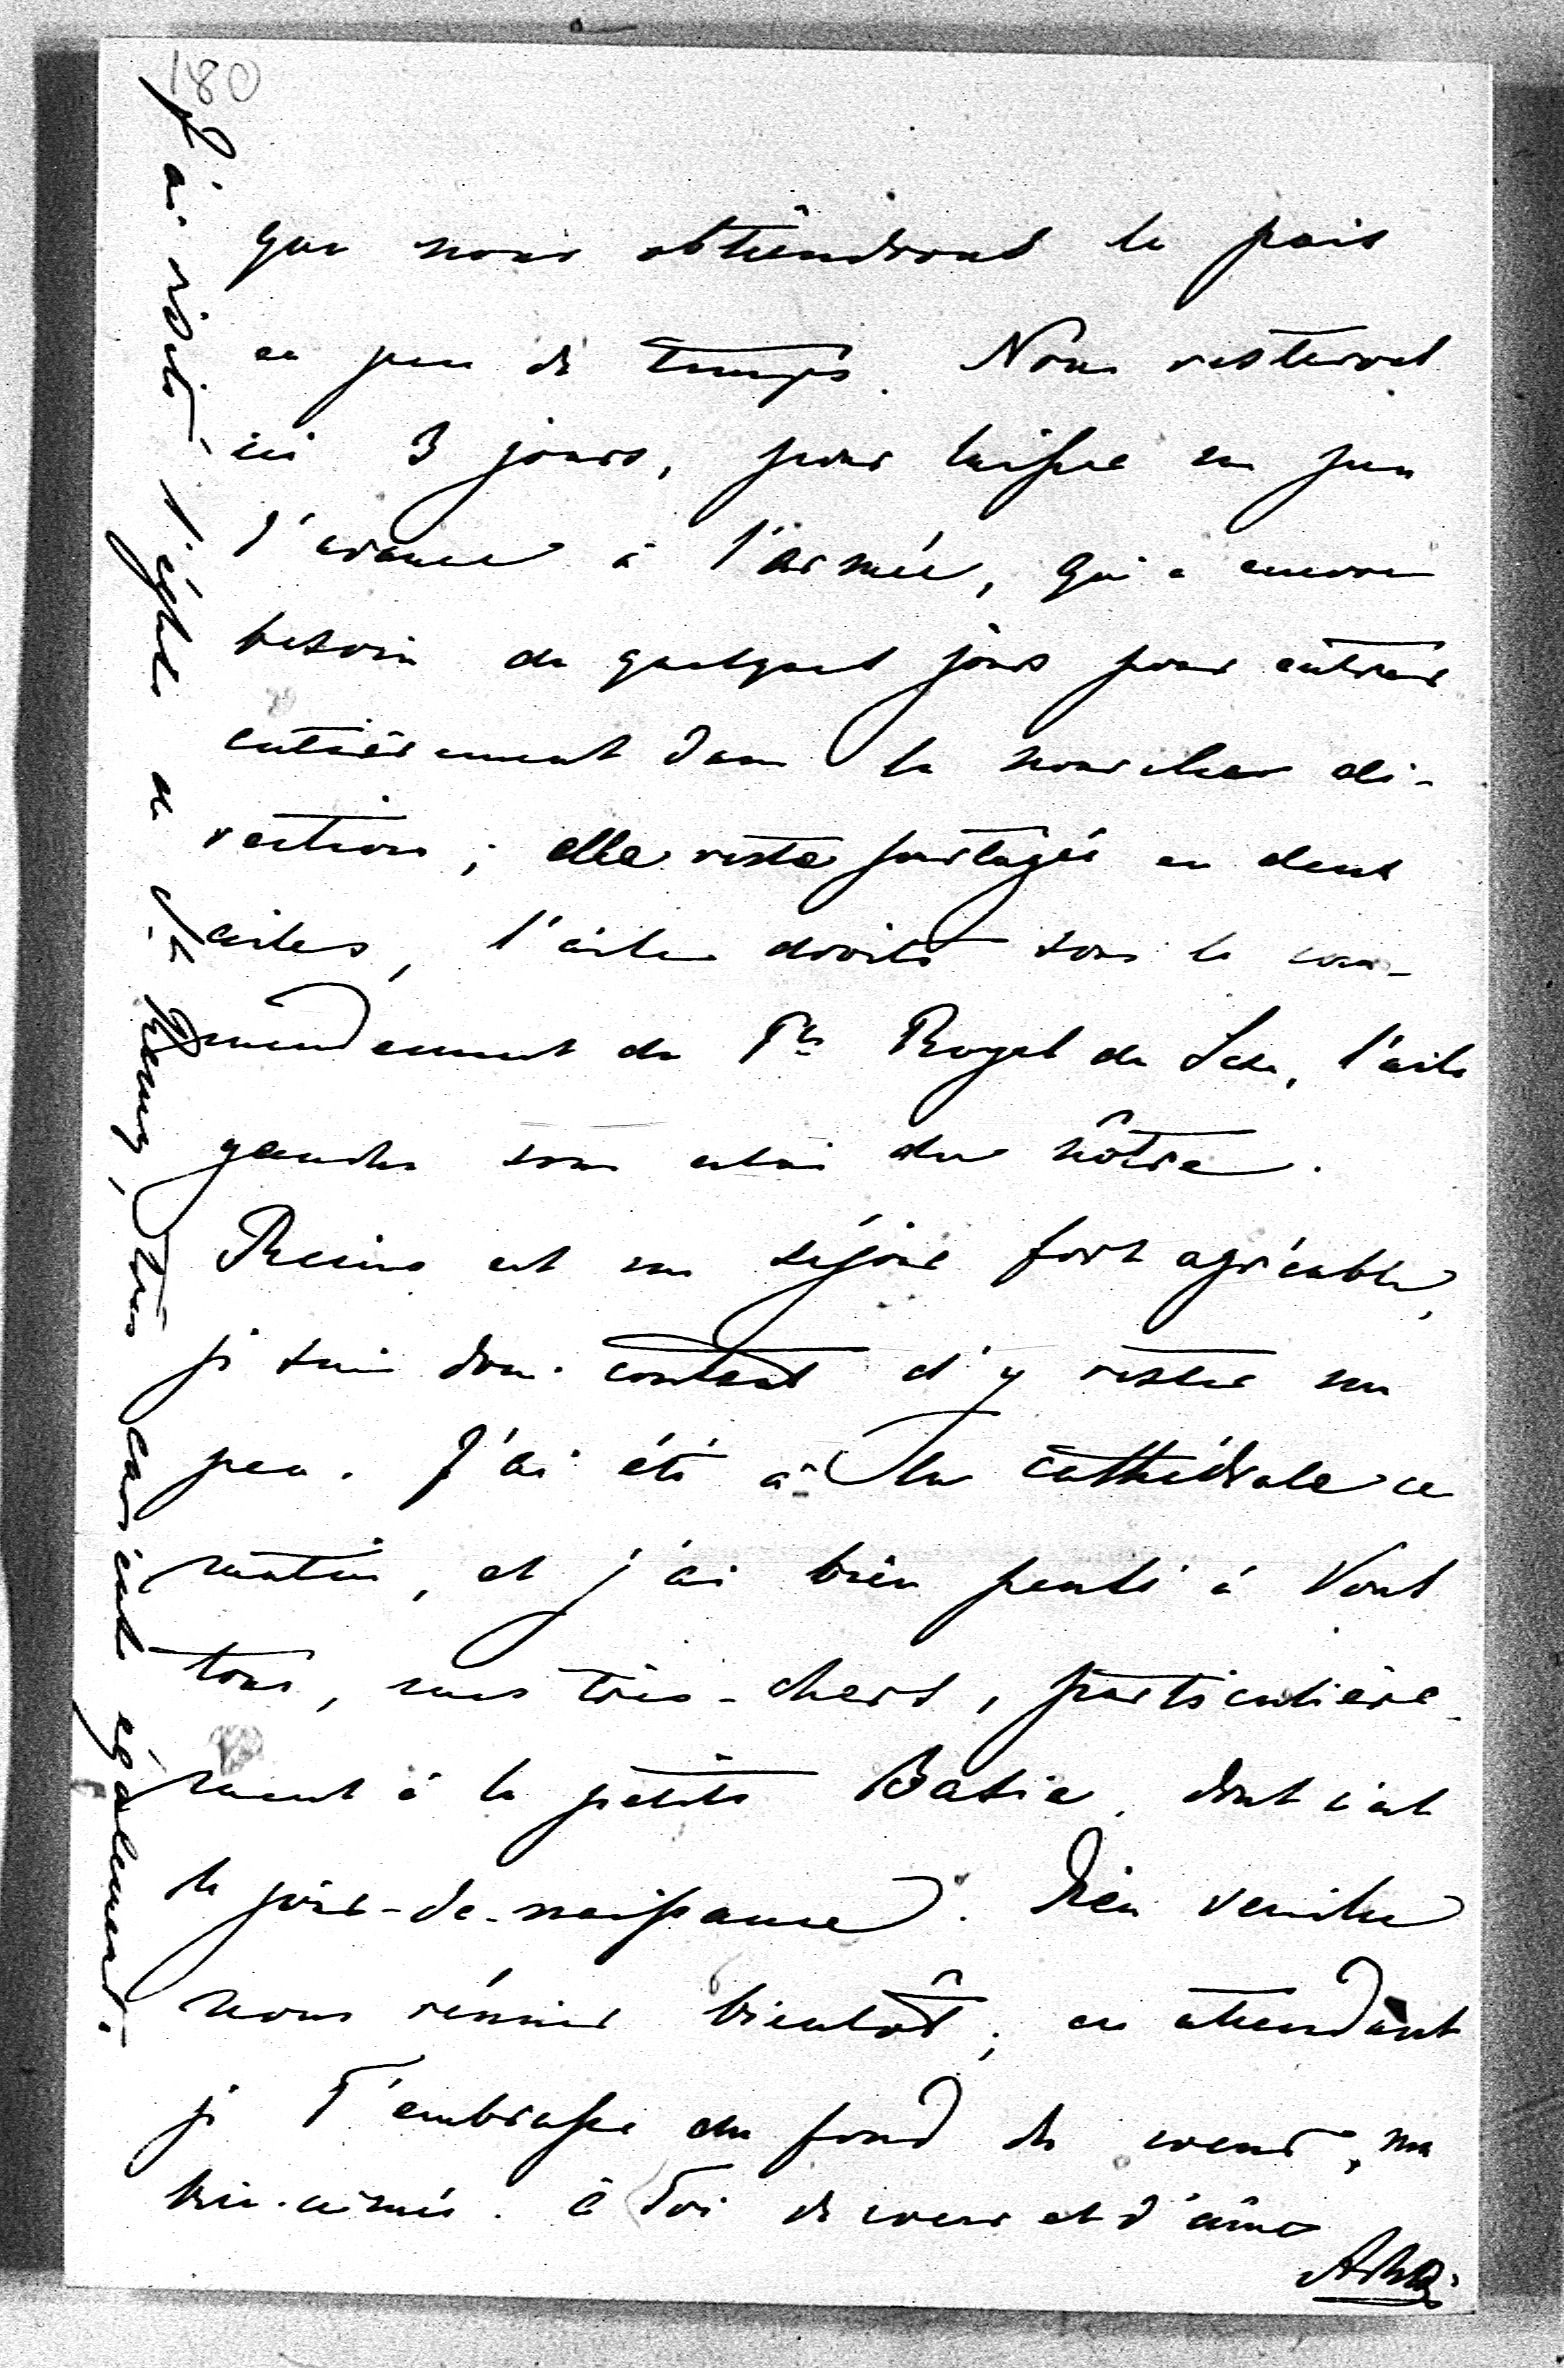 180
que nous obtiendrons la paix
en peu de temps. Nous resterons
ici 3 jours, pour laisser un peu
d'avance à l'armée, qui a encore
besoin de quelques jours pour entrer
entièrement dans la nouvelle di-
rection; elle reste partagée en deux
ailes, l'aile droite sous le com-
mandement du Pce Royal de Saxe, l'aile
gauche sous celui du nôtre.
Reims est un séjour fort agréable,
je suis donc content d'y rester un
peu. J'ai été à la cathédrale ce
matin, et j'ai bien pensé à Vous
tous, mes très-chers, particulière-
ment à la petite Basia, dont c'est
le jour-de-naissance. Dieu veuille
nous réunir bientôt; en attendant
je T'embrasse du fond du coeur, ma
bien-aimée. à Toi de coeur et d'âme
J'ai visité l'église de St. Remy, très curieuse également.